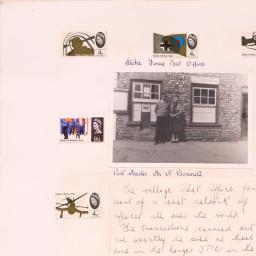 4d
4d
Stoke Post Office
9d
Post Master Mr. N
4d
The village Post Office forms
part of a vast network of
offices all over the world.
The transactions carried out
are exactly the same as
done in the larger G.P.O's in